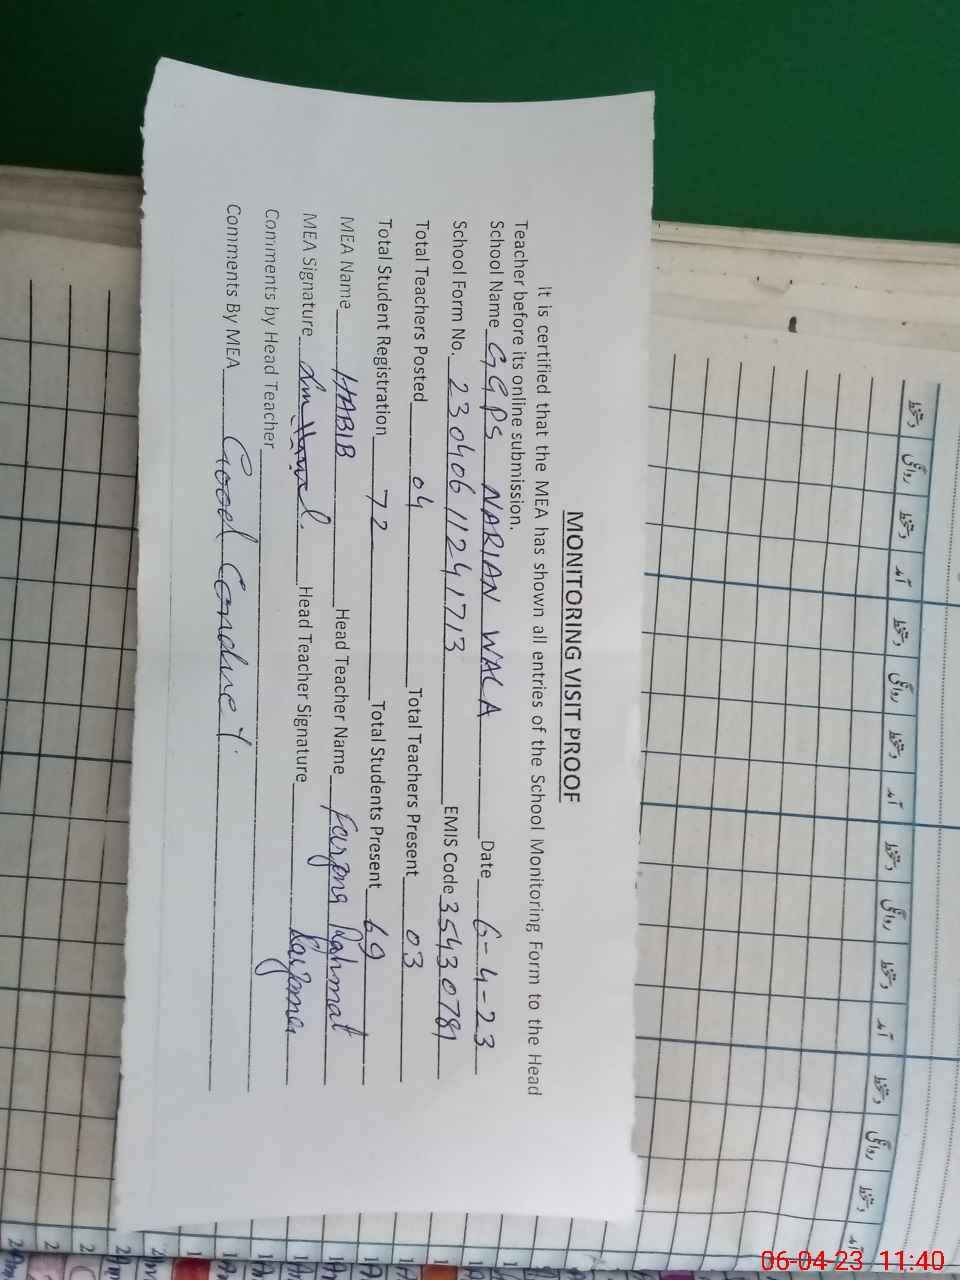 MONITORING VISIT PROOF
It is certified that the MEA has shown all entries of the School Monitoring Form to the Head
Teacher before its online submission.
School Name GGPS NARIAN WALA Date 6-4-23
School Form No. 23040611241713 EMIS Code 35430781
Total Teachers Posted 04 Total Teachers Present 03
Total Student Registration 72 Total Students Present 69
MEA Name HABIB Head Teacher Name Farzana Rahmat
MEA Signature Head Teacher Signature
Comments by Head Teacher
Comments By MEA Good Conduct.
دستخط روانگی دستخط آمد دستخط روانگی دستخط آمد دستخط روانگی دستخط آمد دستخط روانگی دستخط آمد
06-04-23 11:40